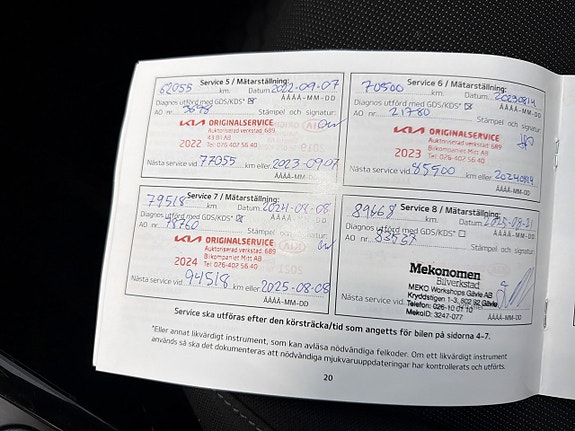 Service 5 / Mätarställning:
62055 km. Datum 2022-09-07
ÅÅÅÅ-MM-DD
Diagnos utförd med GDS/KDS*
AO nr. 3698 Stämpel och signatur:
KIA ORIGINALSERVICE
Auktoriserad verkstad: 689
43 BI AB
2022 Tel: 026 402 56 40
Nästa service vid. 77055 km eller 2023-09-07
ÅÅÅÅ-MM-DD
Service 6 / Mätarställning:
70500 km. Datum. 20230814
ÅÅÅÅ-MM-DD
Diagnos utförd med GDS/KDS*
AO nr. 21780 Stämpel och signatur:
KIA ORIGINALSERVICE
Auktoriserad verkstad: 689
Bilkompaniet Mitt AB
2023 Tel: 026-402 56 40
Nästa service vid. 85500 km eller 20240814
ÅÅÅÅ-MM-DD
Service 7 / Mätarställning:
79518 km. Datum. 2024-08-08
ÅÅÅÅ-MM-DD
Diagnos utförd med GDS/KDS*
AO nr. 78760 Stämpel och signatur:
KIA ORIGINALSERVICE
Auktoriserad verkstad: 689
Bilkompaniet Mitt AB
2024 Tel: 026-402 56 40
Nästa service vid. 94518 km eller 2025-08-08
ÅÅÅÅ-MM-DD
Service 8 / Mätarställning:
89668 km. Datum. 2025-08-21
ÅÅÅÅ-MM-DD
Diagnos utförd med GDS/KDS*
AO nr. Stämpel och signatur:
Mekonomen
Bilverkstad
MEKO Workshops Gävle AB
Kryddstigen 1-3, 802 92 Gävle
Telefon: 026-10 01 10
MekoID: 3247-077
Nästa service vid.
ÅÅÅÅ-MM-DD
Service ska utföras efter den körsträcka/tid som angetts för bilen på sidorna 4-7.
*Eller annat likvärdigt instrument, som kan avläsa nödvändiga felkoder. Om ett likvärdigt instrument
används så ska det dokumenteras att nödvändiga mjukvaruuppdateringar har kontrollerats och utförts.
20